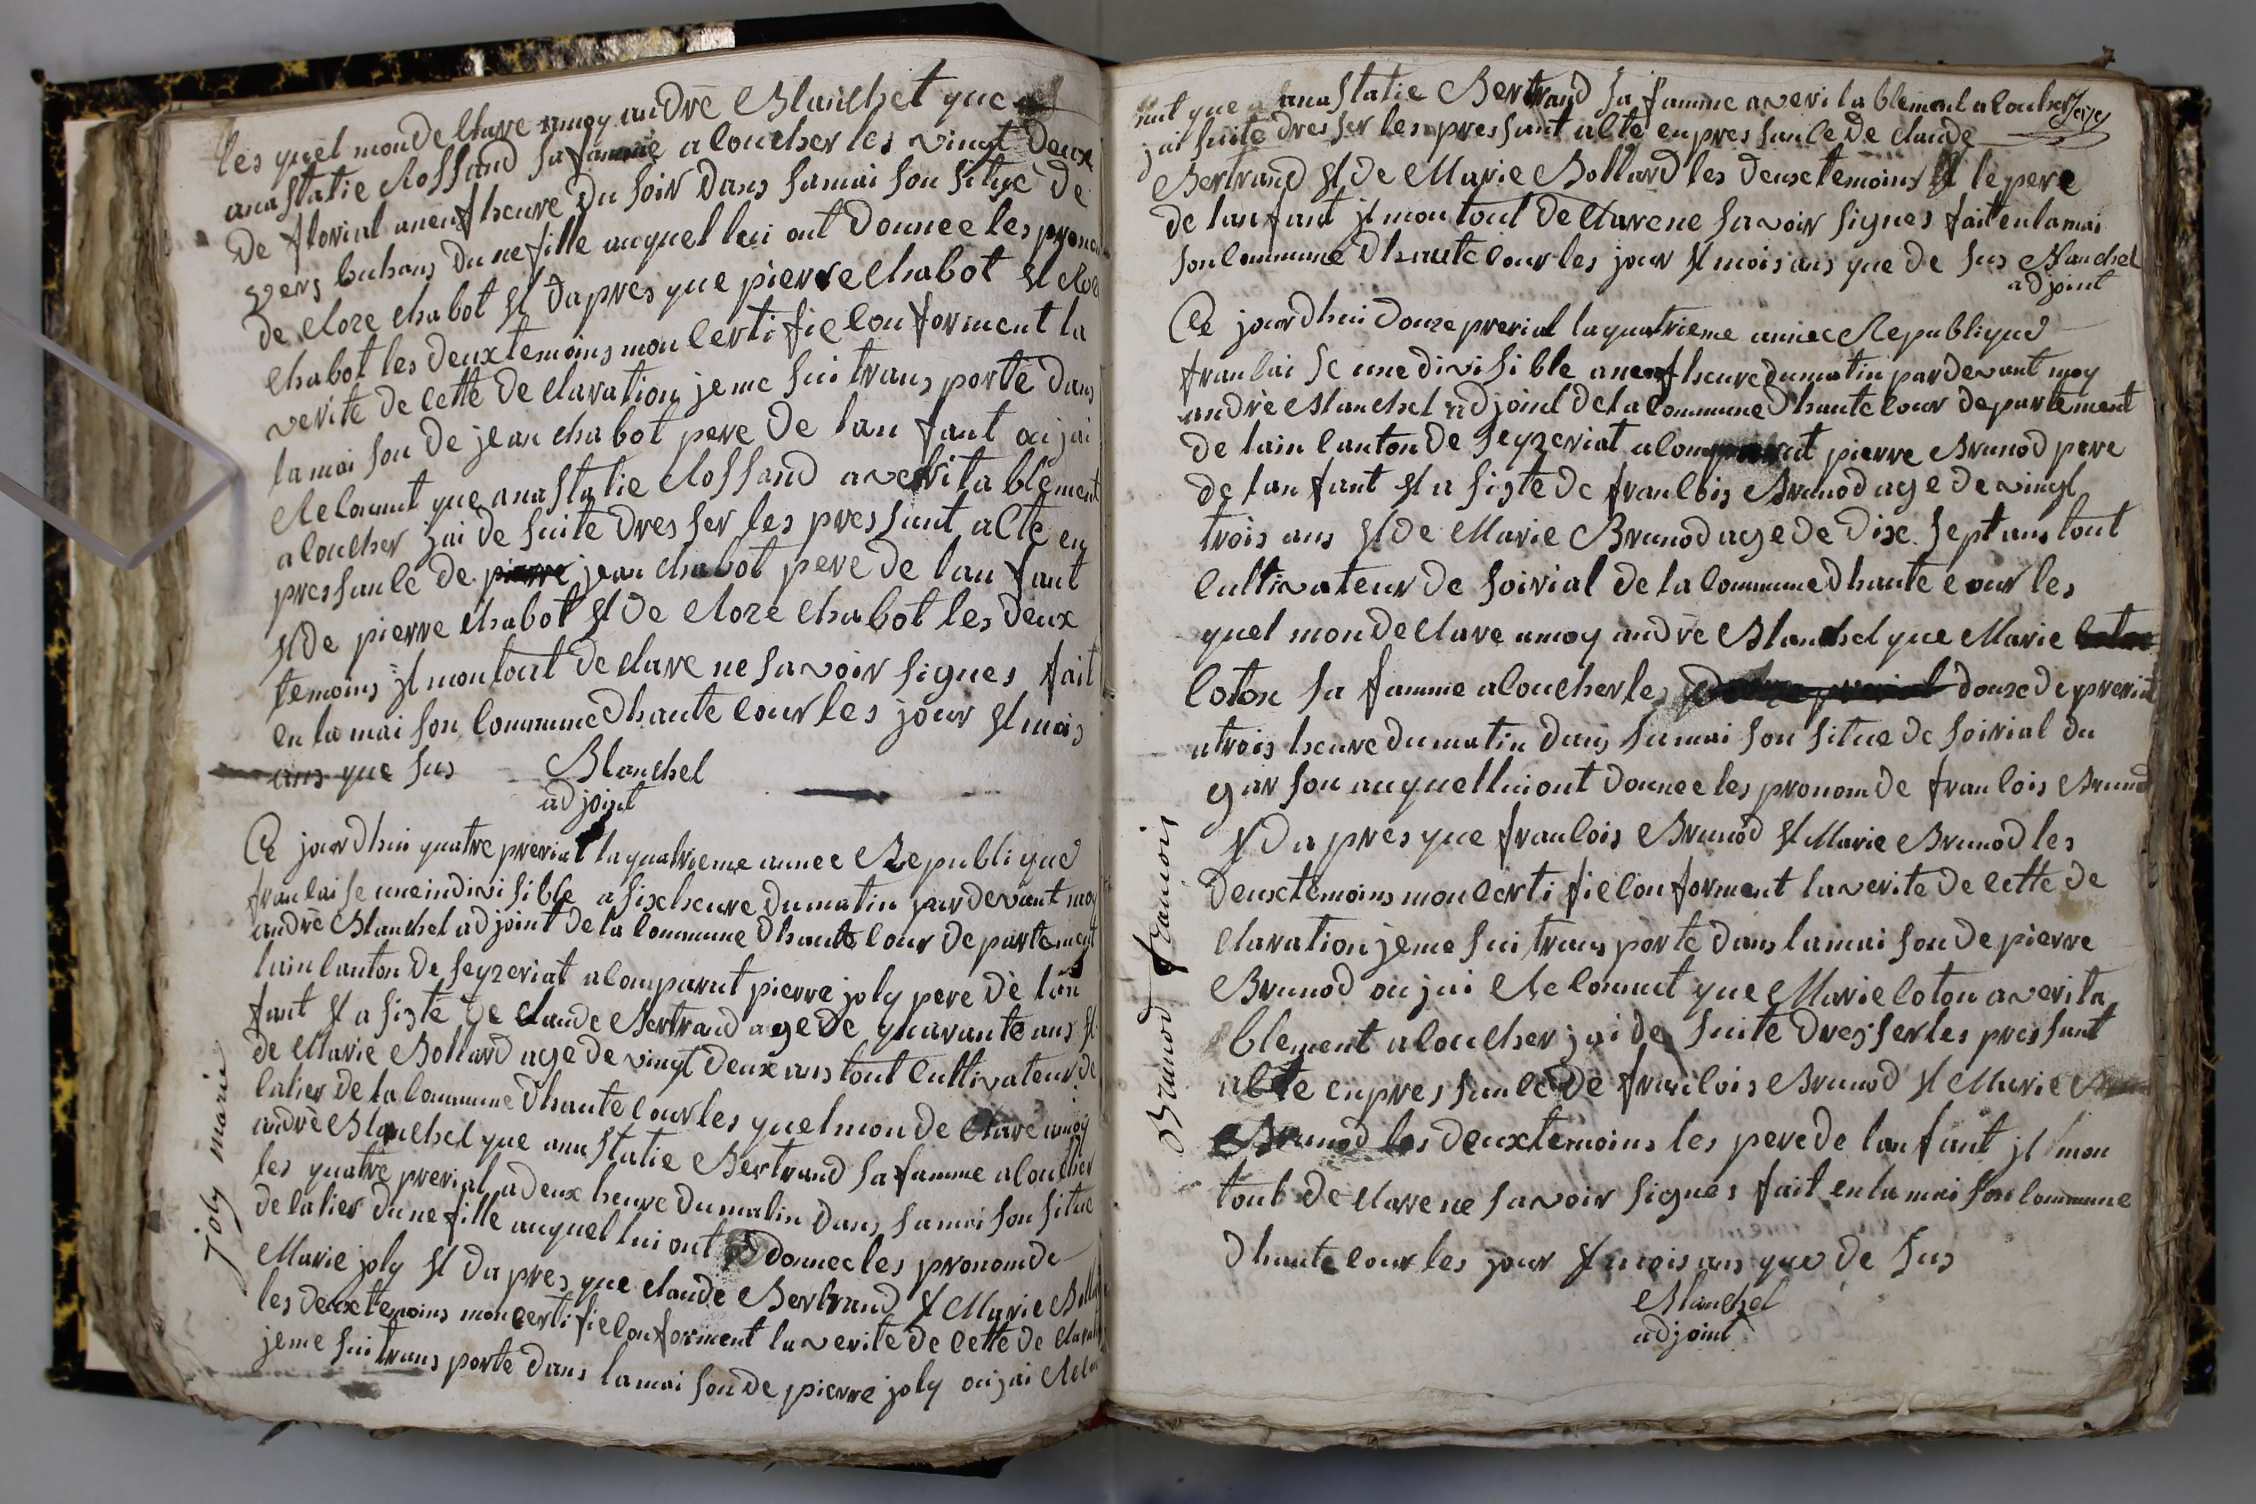 les quel mon declare amoy andrè Blanchet que
anastatie Rossand sa famme acoucher les vingt deux
de florial aneuf heure du soir dans samai son situé de
vers buhans dune fille auquel lui ont donnee les
de cloze chabot et dapres que pierre chabot et
chabot les deux temoins mon certifie conforment la
verite de cette declaration jeme sui trans porte dans
lamai son de jean chabot pere de lan fant ou jai
Reconnut que anastatie Rossand averita blement
acoucher jai de suite dresser les pressant acte en
pressance de pierre jean chabot pere de lan fant
et de pierre chabot et de cloze chabot les deux
temoins jl mon tout declare ne savoir signes fait
en la mai son commune dhaute cour les jour et mois
ans que sus Blanchet
adjoint
Ce jourdhui quatre prerial la quatrieme annee Republique
francaise une indivisible a six heure du matin par devant moy
andrè Blanchet adjoint de la commune dhaute cour departement
lain canton de seyzeriat a comparut pierre joly pere de lan
fant et a siste de claude Bertrand age de quarante ans et
de Marie Bollard age de vingt deux ans tout cultivateur de
lalier de la commune dhaute cour les quel mon declare amoy
andrè Blanchet que anastatie Bertrand sa famme acoucher
les quatre prerial a deux heure du matin dans samai son situe
de lalier dune fille auquel lui ont donnee les pronom de
Marie joly et dapres que claude Bertrand et Marie
les deux temoins mon certifie conforment la verite de cette
jeme sui trans porte dans lamai son de pierre joly ou jai
joly marie
nut que anastatie Bertrand sa famme averitablement acoucher
jai suite dresser les pressant acte en pressance de claude
Bertrand et de Marie Bollard les deux temoins et le pere
de lan fant jl mon tout declare ne savoir signes fait en la mai
son commune dhaute cour les jour et mois ans que de sus Blanchet
adjoint
Ce jourdhui douze prerial la quatrieme annee Republique
francai se une divisible aneuf heure du matin par devant moy
andrè Blanchet adjoint de la commune dhaute cour departement
de lain canton de seyzeriat a comparut pierre Brunod pere
de lan fant et a siste de francois Brunod age de vingt
trois ans et de Marie Brunod age de dix sept ans tout
cultivateur de soirial de la commune dhaute cour les
quel mon declare amoy andrè Blanchet que Marie
coton sa famme acoucher les douze prerial douze de prerial
atrois heure du matin dans samai son situe de soirial du
garson auquel lui ont donnee les pronom de francois Brunod
et dapres que francois Brunod et Marie Brunod les
deux temoins mon certifie conforment la verite de cette de
claration jeme sui trans porte dans lamai son de pierre
Brunod ou jai Reconnut que Marie coton averita
blement acoucher jai de suite dresser les pressant
acte en pressance de francois Brunod et Marie
Brunod les deux temoins les pere de lan fant jl mon
tout declare ne savoir signes fait en la mai son commune
dhaute cour les jour et mois ans que de sus
Blanchet
adjoint
Brunod francois